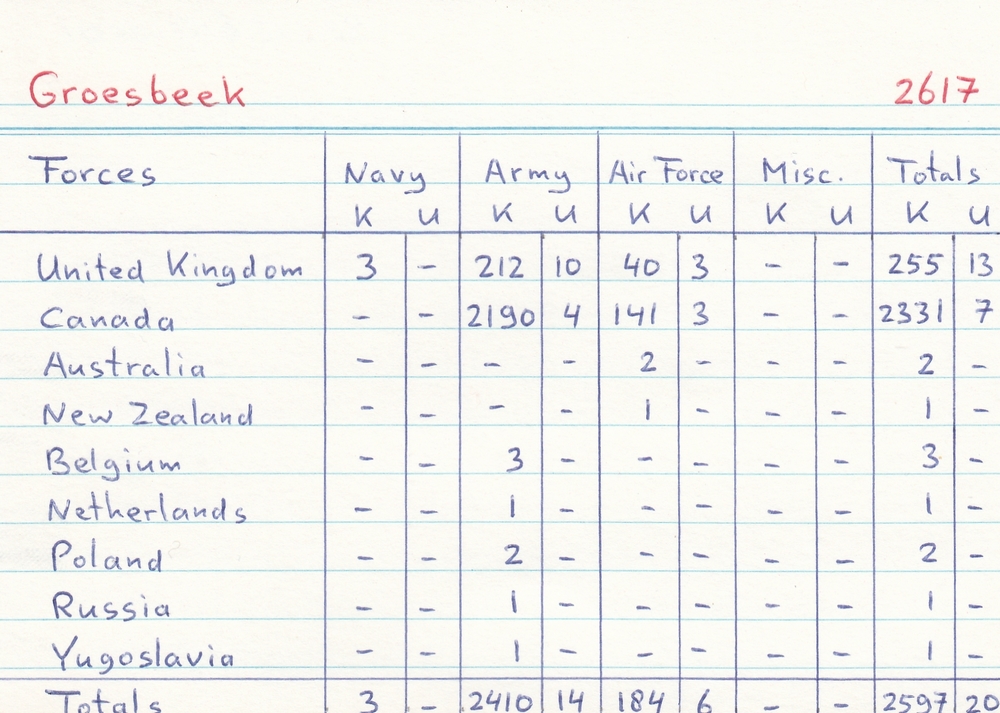 Groesbeek 2617
Forces Navy Army Air Force Misc. Totals
K U K U K U K U K U
United Kingdom 3 - 212 10 40 3 - - 255 13
Canada - - 2190 4 141 3 - - 2331 7
Australia - - - - 2 - - - 2 -
New Zealand - - - - 1 - - - 1 -
Belgium - - 3 - - - - - 3 -
Netherlands - - 1 - - - - - 1 -
Poland - - 2 - - - - - 2 -
Russia - - 1 - - - - - 1 -
Yugoslavia - - 1 - - - - - 1 -
Totals 3 - 2410 14 184 6 - - 2597 20